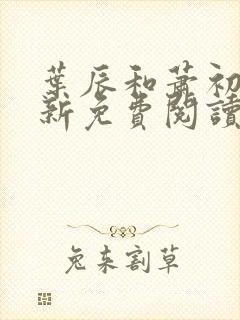 葉辰和蕭初
新免費閱讀
兔來割草